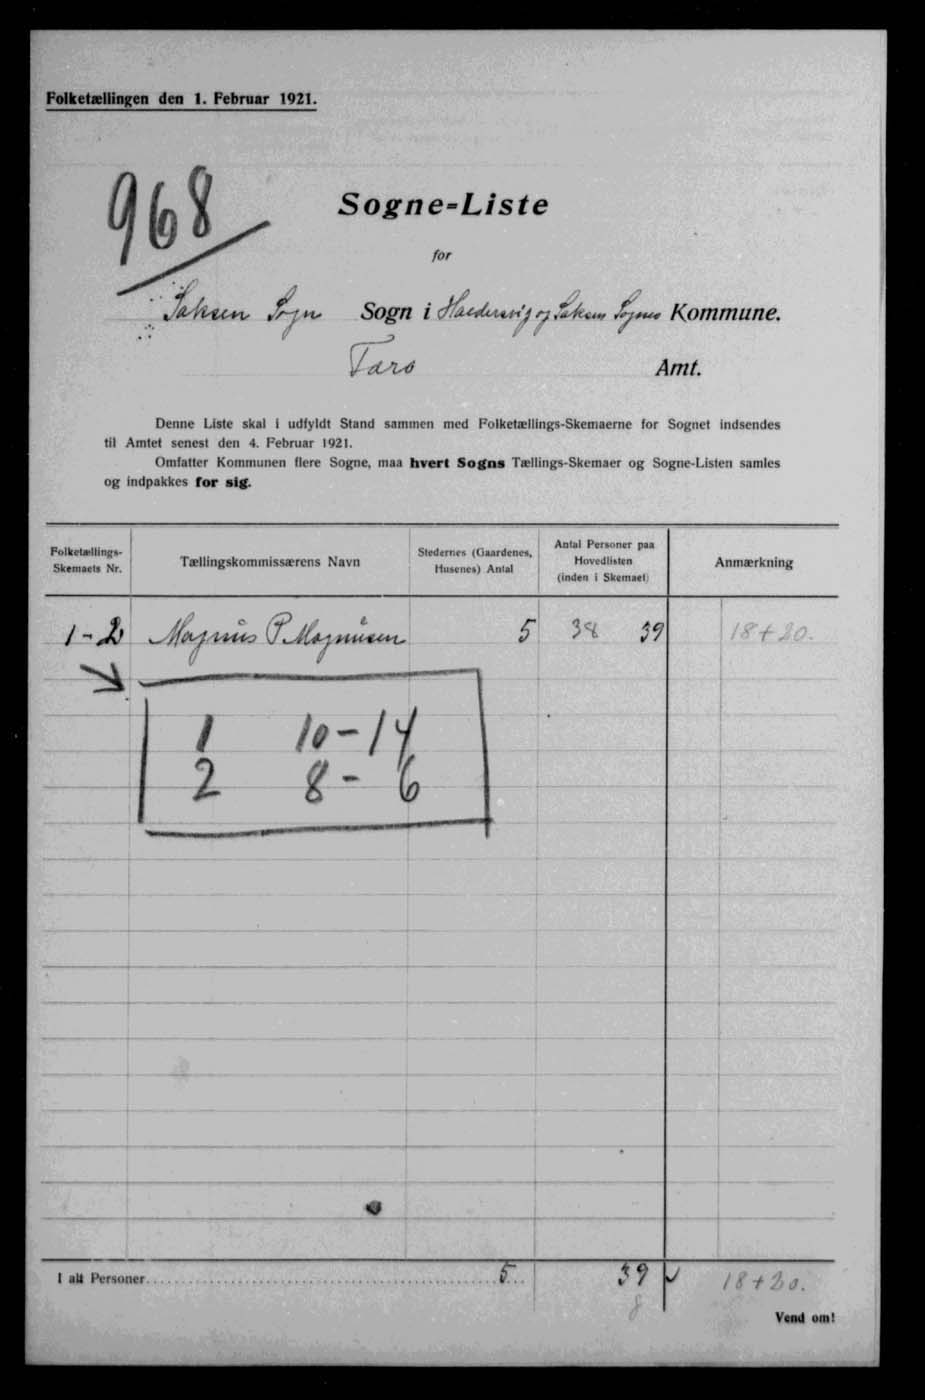 Folketællingen den 1. Februar 1921.
968
Sogne=Liste
for
Saksen Sogn Sogn i Haldersvig og Saksen Sognes Kommune.
Færø Amt.
Denne Liste skal i udfyldt Stand sammen med Folketællings-Skemaerne for Sognet indsendes
til Amtet senest den 4. Februar 1921.
Omfatter Kommunen flere Sogne, maa hvert Sogns Tællings-Skemaer og Sogne-Listen samles
og indpakkes for sig.
Folketællings-
Skemaets Nr.
Tællingskommissærens Navn
Stedernes (Gaardenes,
Husenes) Antal
Antal Personer paa
Hovedlisten
(inden i Skemaet)
Anmærkning
1-2 Magnus P Magnussen 5 38 39 18+20.
1 10-14
2 8-6
I alt Personer 5 39 18+20.
8
Vend om!